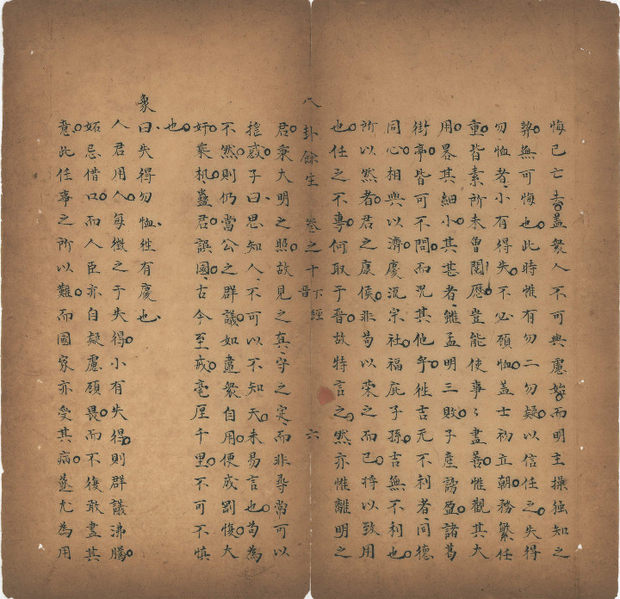 悔已亡矣蓋衆人不可與慮始而明主操獨知之
契無可悔也此時惟有勿二勿疑以信任之失得
勿恤者小有得失不必顧恤蓋士初立朝務繁任
重皆素所未曾閱歷豈能使事〻盡善惟觀其大
用畧其細小其甚者雖孟明三敗子產謗盈諸葛
街亭皆可不問而况其他乎徃吉无不利者同德
同心相與以濟慶流宗社福庇子孫吉無不利也
所以然者君之康侯非苟以榮之而已將以致用
也任之不專何取于晉故特言之然亦惟離明之
八卦餘生 卷之十 下經 晉 六
君秉大明之照故見之真守之定而非尋常可以
搖惑子曰思知人不可以不知天未易言也苟為
不然則仍當公之群議如違衆自用便成剛愎大
奸乘机蠱君誤國古今至戒毫厘千里不可不慎
也
象曰失得勿恤徃有慶也
人君用人每徵之于失得小有失得則群議沸騰
妬忌借口而人臣亦自疑慮顧畏而不復敢盡其
意此任事之所以難而國家亦受其病尤為用